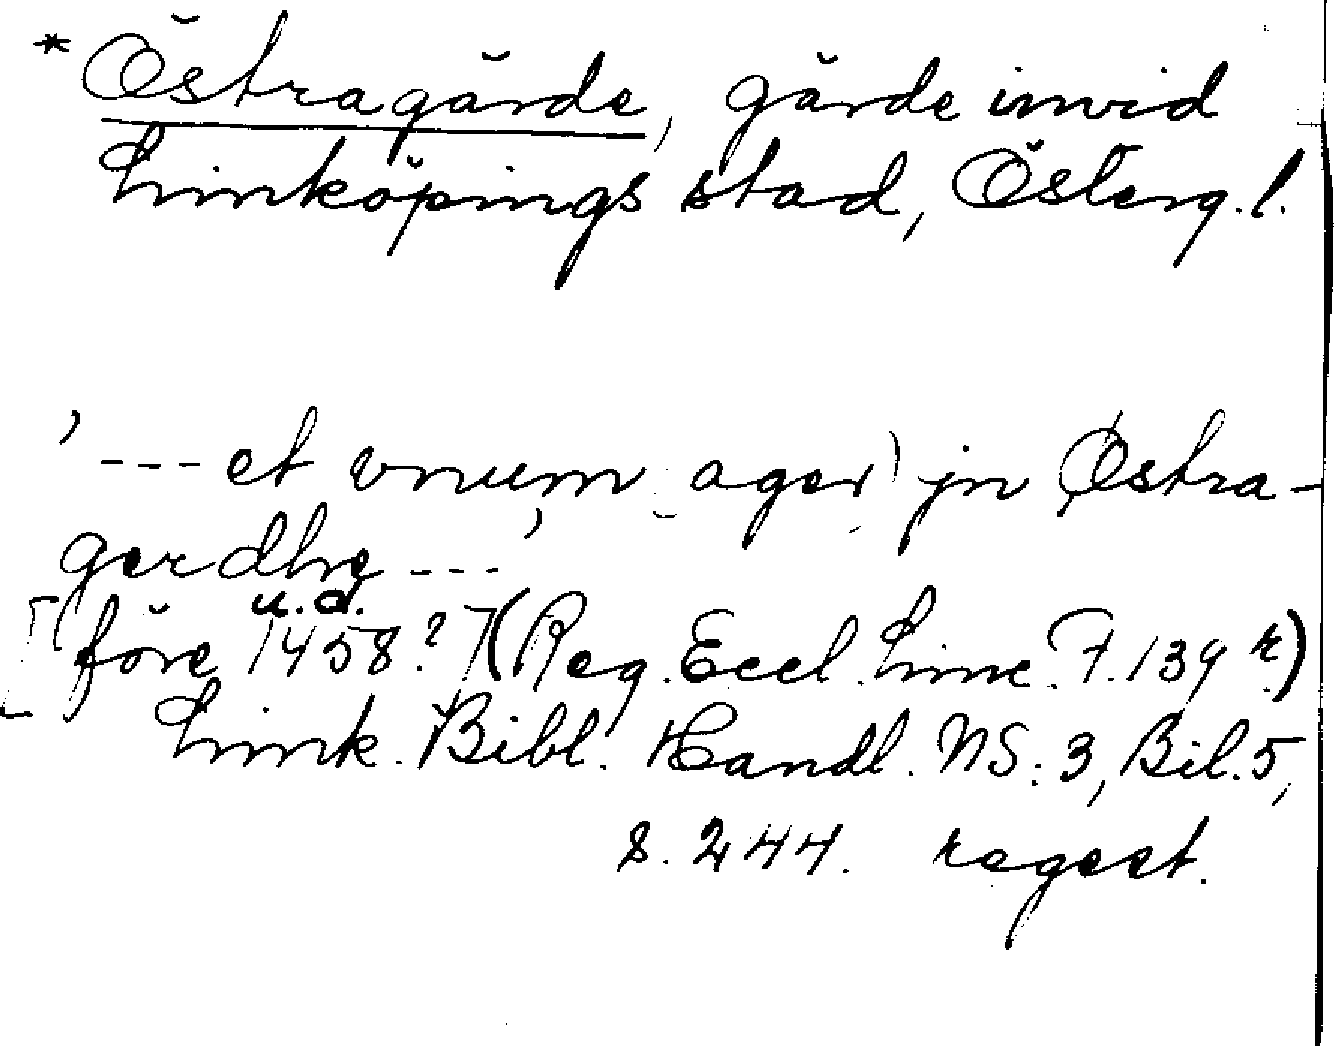 * Östragärde, gärde invid
Linköpings stad, Österg.l.
'--- et vnum ager jn Østra-
gerdhe ---'
u.d.
[före 1458?] (Reg. Eccl. Linc. F. 139 r)
Link. Bibl. Handl. NS: 3, Bil. 5,
s. 244. regest.